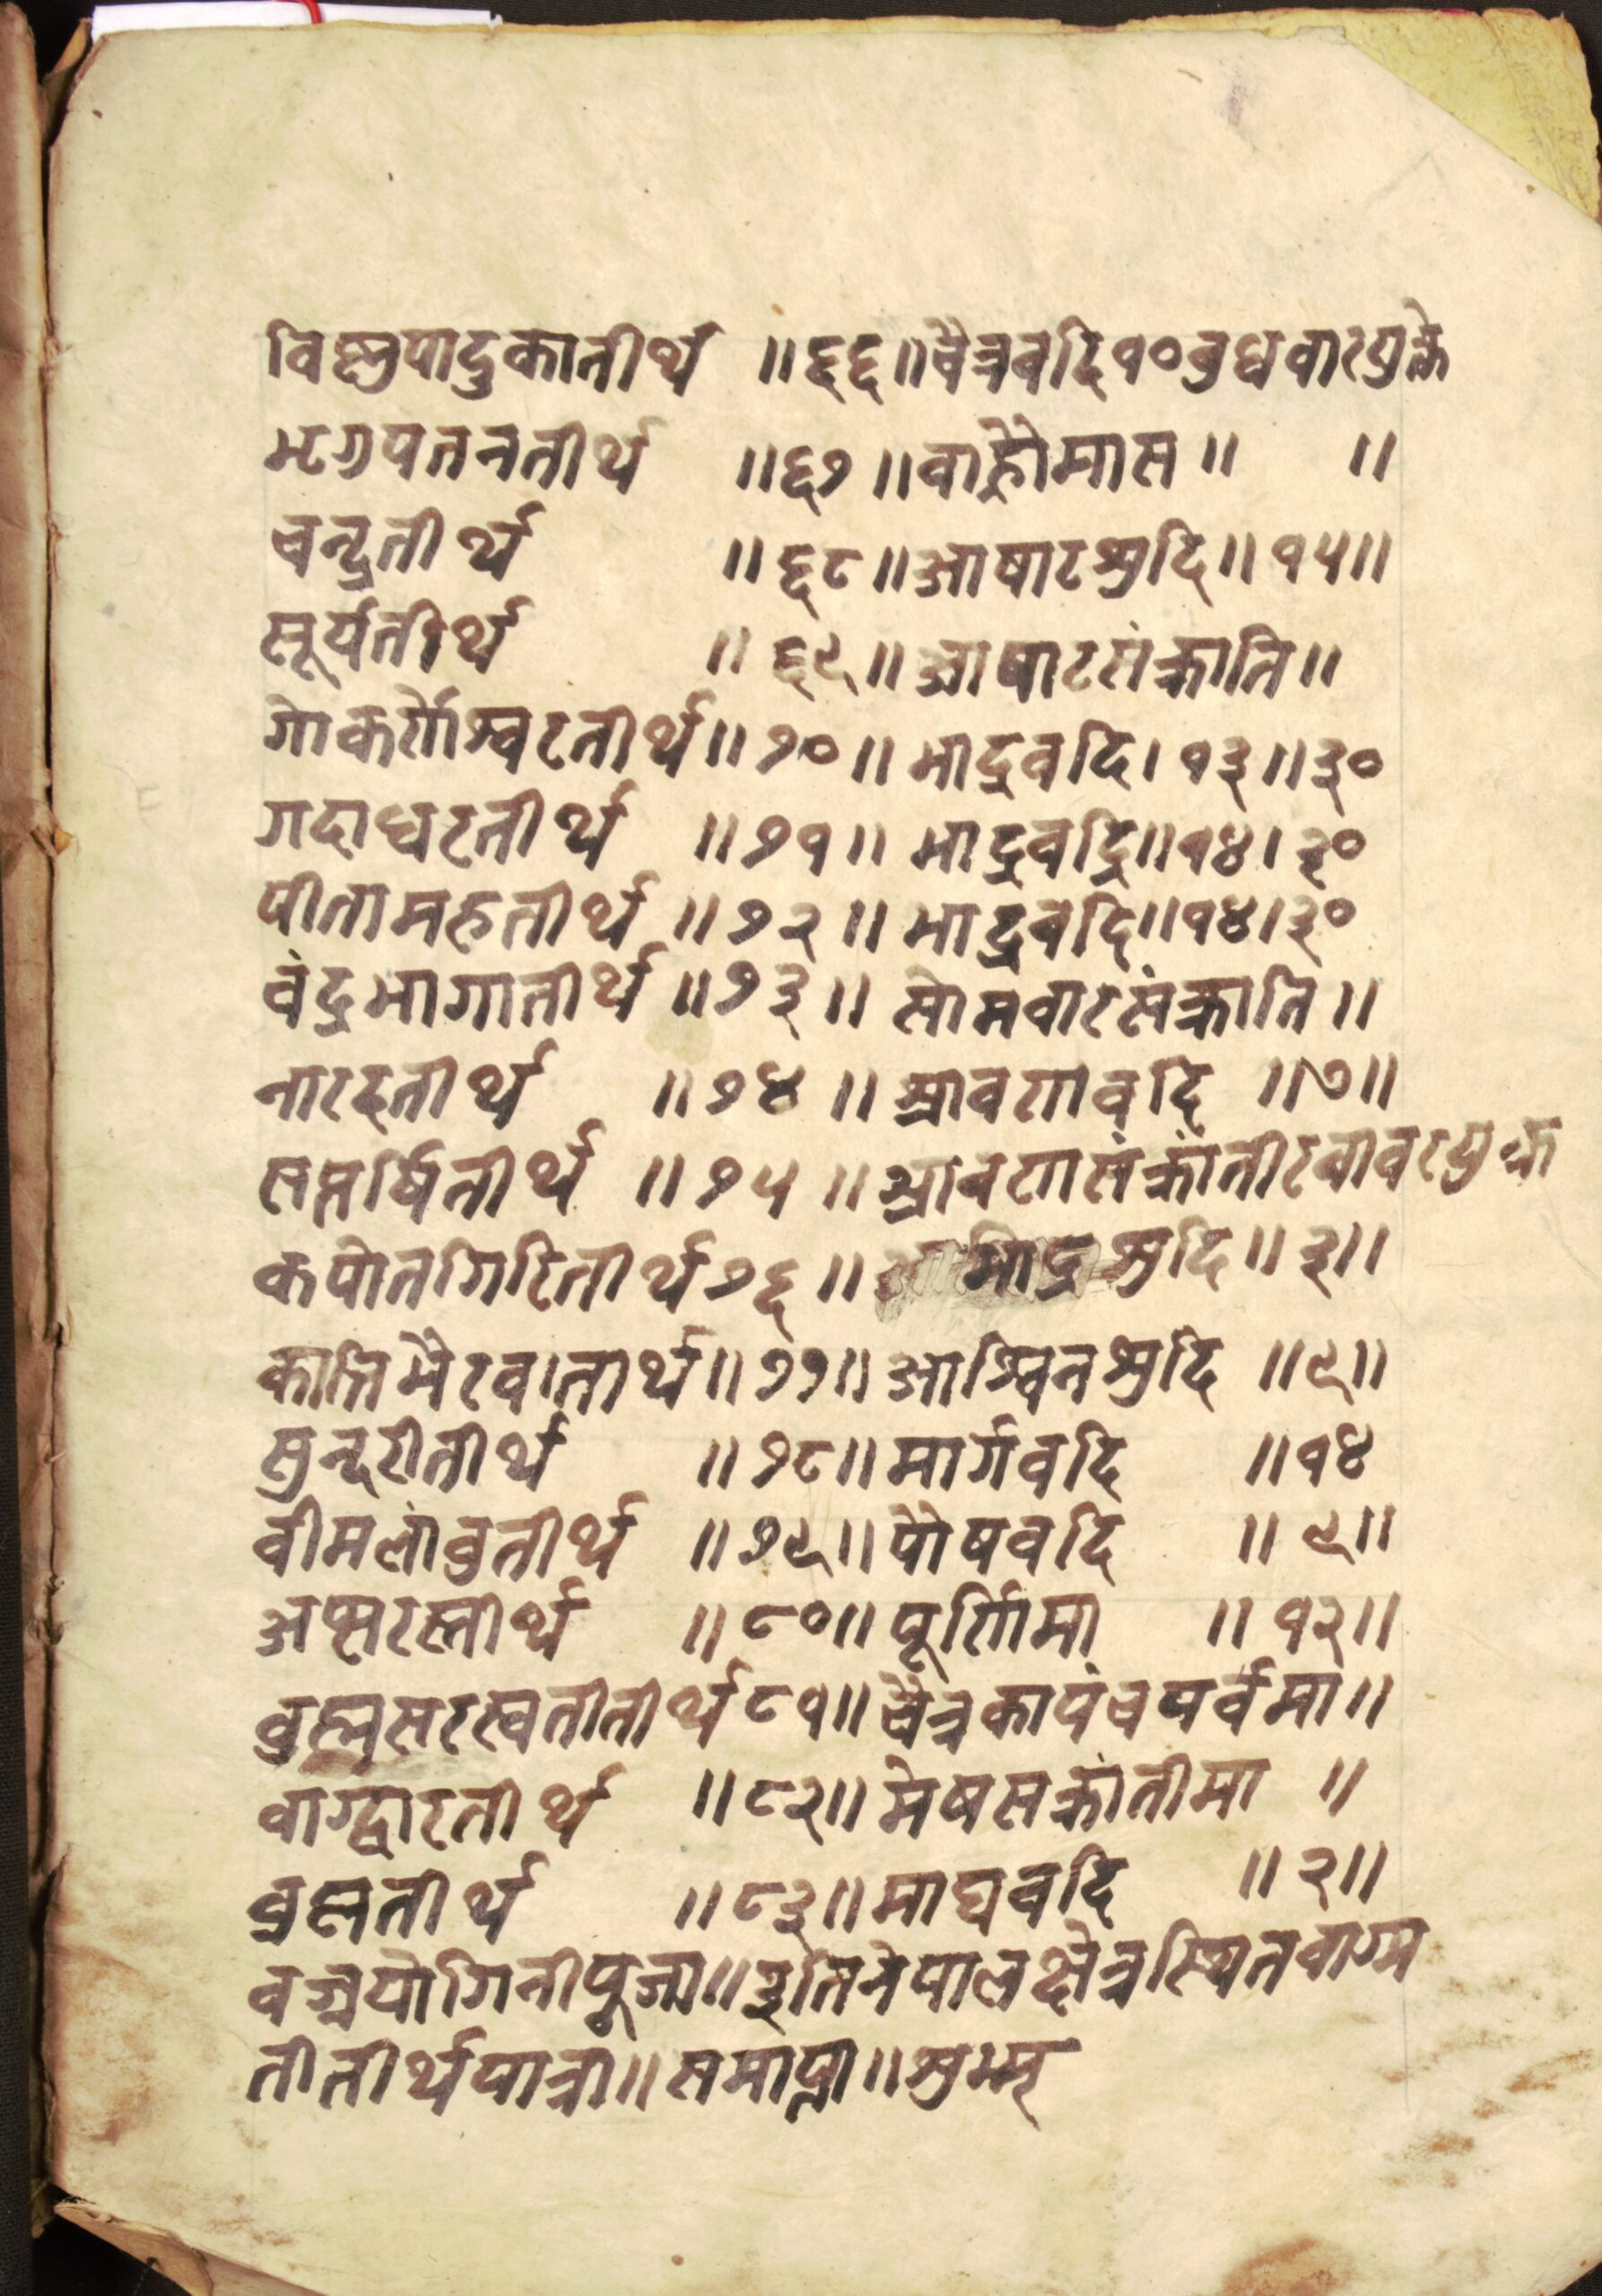 विष्णुपादुकातीर्थ ॥६६॥ चैत्रवदि १० बुधवारयुक्ते
मृगपतनतीर्थ ॥६७॥ वाह्रौमास ॥ ॥
चन्द्रतीर्थ ॥६८॥ आषाढशुदि ॥ १५॥
सूर्यतीर्थ ॥ ६९॥ आषाढसंक्राति ॥
गोकर्णेश्वरतीर्थ ॥ ७०॥ भाद्रवदि । १३॥ ३०
गदाधरतीर्थ ॥७१॥ भाद्रवद्रि ॥१४। ३०
पीतामहतीर्थ ॥७२॥ भाद्रवदि ॥१४। ३०
चंद्रभागातीर्थ ॥७३॥ सोमवारसंक्राति ॥
नारदतीर्थ ॥७४॥ श्रावणवदि ॥७॥
सप्तर्षितीर्थ ॥७५॥ श्रावणसंक्रांतीरवीवरयुक्त
कपोतगिरितीर्थ ७६॥ भाद्रशुदि ॥ ३॥
कान्तिभैरवातीर्थ ॥७७॥ आश्विनशुदि ॥९॥
सुन्दरीतीर्थ ॥७८॥ मार्गवदि ॥१४
वीमलांवुतीर्थ ॥७९॥ पौषवदि ॥ ९॥
अप्सरस्तीर्थ ॥८०॥ पूर्णिमा ॥ १२॥
ब्रह्मसरस्वतीतीर्थ ८१॥ चैत्रकापंचपर्वमा ॥
वाग्द्वारतीर्थ ॥८२॥ मेषसक्रांतीमा ॥
ब्रह्मतीर्थ ॥८३॥ माघवदि ॥ २॥
वज्रयोगिनीपूज्य ॥ इतिनेपालक्षेत्रस्थितवाग्म
तीतीर्थयात्रा ॥ समाप्ता ॥ शुभम्